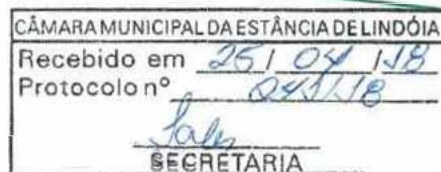 CÂMARA MUNICIPAL DA ESTÂNCIA DE LINDÓIA
Recebido em 25 / 04 / 18
Protocolo nº 241/18
SECRETARIA